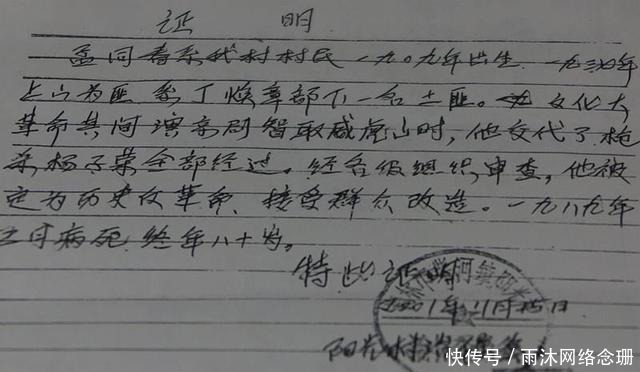 证 明
孟同春系我村村民 一九0九年出生 一九三0年
上山为匪 系丁焕章部下一名土匪。文化大
革命其间演京剧智取威虎山时，他交代了枪
杀杨子荣全部经过。经各级组织审查，他被
定为历史反革命，接受群众改造。一九八九年
二月病死 终年八十岁。
特此证明
2001年11月25日
快传号／雨沐网络念珊